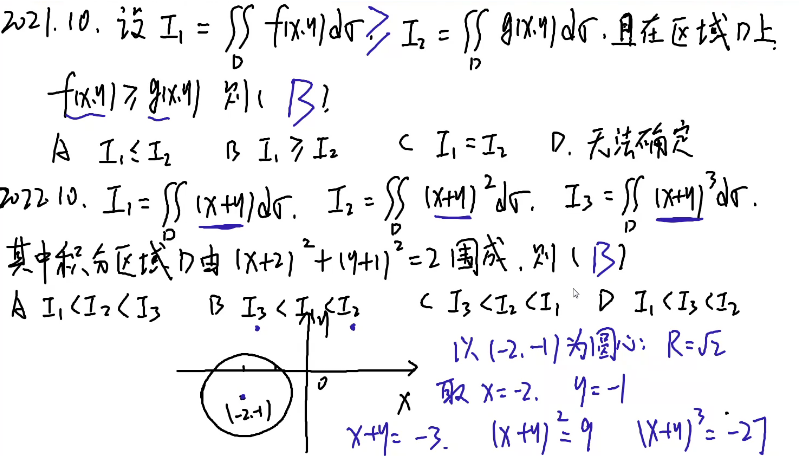 2021.10. 设 I₁ = ∬_D f(x,y)dσ ≥ I₂ = ∬_D g(x,y)dσ. 且在区域D上
f(x,y) ≥ g(x,y) 则( B )
A I₁≤I₂ B I₁≥I₂ C I₁=I₂ D. 无法确定
2022.10. I₁=∬_D (x+y)dσ. I₂=∬_D (x+y)²dσ. I₃=∬_D (x+y)³dσ.
其中积分区域D由 (x+2)²+(y+1)²=2围成, 则 ( B )
A I₁<I₂<I₃ B I₃<I₁<I₂ C I₃<I₂<I₁ D I₁<I₃<I₂
y
以(-2.-1)为圆心: R=√2
0
X
取 x=-2. y=-1
(-2.-1)
x+y= -3. (x+y)²=9 (x+y)³=-27